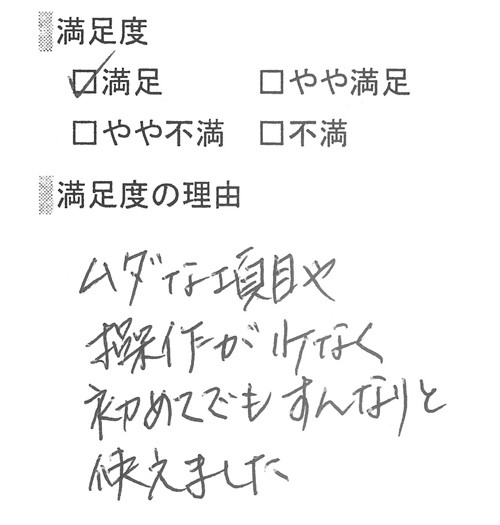 満足度
☑満足 □やや満足
□やや不満 □不満
満足度の理由
ムダな項目や
操作が少なく
初めてでもすんなりと
使えました